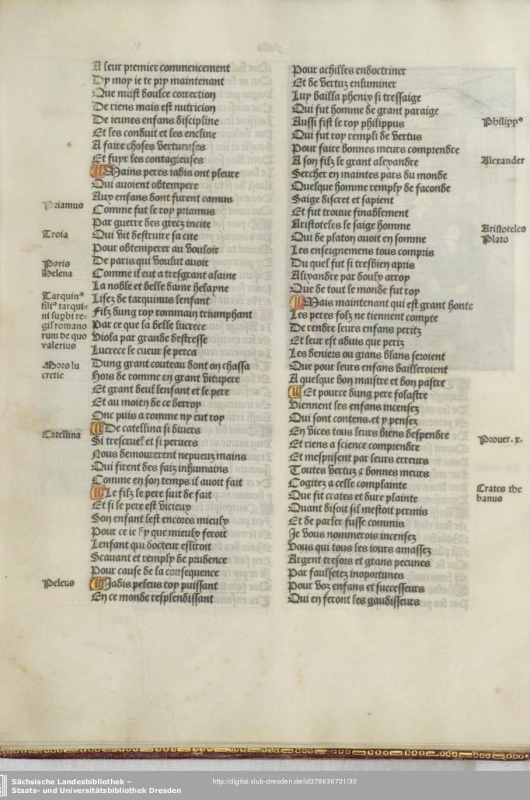 A leur premier commencement
Dy moy ie te pry maintenant
Que nuist doulce correction
De riens mais est nutricion
De ieunes enfans discipline
Et les conduit et les encline
A faire choses vertueuses
Et fuyr les contagieuses
Mains peres iadis ont pleure
Qui auoient obtempere
Aux enfans dont furent camus
Priamus
Comme fut le roy priamus
Par guerre des grecz incite
Troia
Qui vit destruire sa cite
Pour obtemperer au vouloir
Paris
De paris qui voulut auoir
Helena
Comme il eut a tresgrant alaine
La noble et belle dame helayne
Tarquinꝰ
filiꝰ tarqui-
ni supbi re-
gis romano
rum de quo
valerius
Lisez de tarquinus lenfant
Filz dung roy rommain triumphant
Par ce que la belle lucrece
Viola par grande destresse
Lucrece le cueur se perca
Mors lu
cretie
Dung grant couteau dont on chassa
Hors de romme en grant vitupere
Et grant deul lenfant et le pere
Et au moien de ce derroy
Onc puis a romme ny eut roy
Catellina
De catellina si diuers
Si trescruel et si peruers
Nous demourerent nepueuz mains
Qui firent des faiz inhumains
Comme en son temps il auoit fait
Le filz le pere suit de fait
Et si le pere est vicieux
Son enfant lest encores mieulx
Pour ce ie dy que mieulx feroit
Lenfant qui docteur esliroit
Scauant et remply de prudence
Pour cause de la consequence
Peleus
Jadis peleus roy puissant
En ce monde resplendissant
Pour achilles endoctriner
Et de vertuz enluminer
Luy bailla phenix si tressaige
Qui fut homme de grant paraige
Aussi fist le roy philippus
Philippꝰ
Qui fut roy rempli de vertus
Pour faire bonnes meurs comprendre
A son filz le grant alexandre
Alexander
Sercher en maintes pars du monde
Quelque homme remply de faconde
Saige discret et sapient
Et fut trouue finablement
Aristoteles le saige homme
Aristoteles
Qui de platon auoit en somme
Plato
Les enseignemens tous compris
Du quel fut si tresbien apris
Alixandre par doulx arroy
Que de tout le monde fut roy
Mais maintenant qui est grant honte
Les peres folz ne tiennent compte
De rendre leurs enfans peritz
Et leur est aduis que periz
Les deniers ou gians blans seroient
Que pour leurs enfans bailleroient
A quelque bon maistre et bon pastre
Et pource dung pere folastre
Viennent les enfans incensez
Qui sont contens et y pensez
En vices tous leurs biens despendre
Prouer. x.
Et riens a science comprendre
Et mesprisent par leurs erreurs
Toutes vertuz a bonnes meurs
Cogitez a celle complainte
Crates the
banus
Que fit crates et dure plainte
Quant disoit sil mestoit permis
Et de parler fusse commis
Je vous nommerois incensez
Vous qui tous les iours amassez
Argent tresors et grans pecunes
Par faulsetez inoportunes
Pour voz enfans et successeurs
Qui en feront les gaudisseurs
Sächsische Landesbibliothek –
Staats- und Universitätsbibliothek Dresden
http://digital.slub-dresden.de/id378636731/30